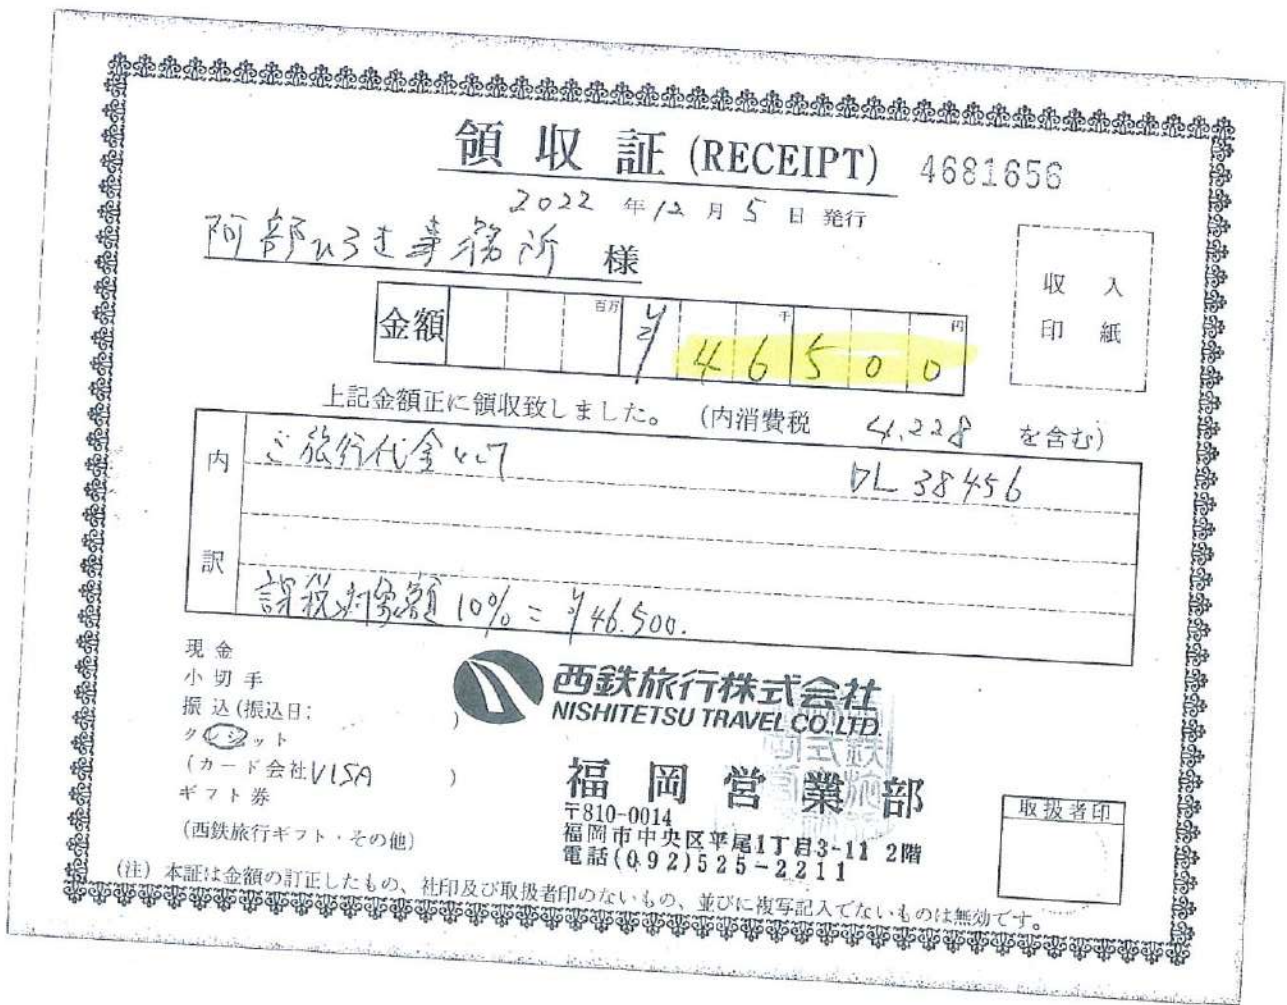 領収証 (RECEIPT) 4681656
2022年12月5日発行
阿部ひろき事務所 様
収入
印紙
金額 百万 千 円 ¥46500
上記金額正に領収致しました。 (内消費税 4,228 を含む)
内訳
ご旅行代金として DL 38456
課税対象額10% = ¥46.500.
現金
小切手
振込(振込日: )
クレジット
(カード会社VISA )
ギフト券
(西鉄旅行ギフト・その他)
西鉄旅行株式会社
NISHITETSU TRAVEL CO.,LTD.
福岡営業部
〒810-0014
福岡市中央区平尾1丁目3-11 2階
電話(092)525-2211
取扱者印
(注) 本証は金額の訂正したもの、社印及び取扱者印のないもの、並びに複写記入でないものは無効です。